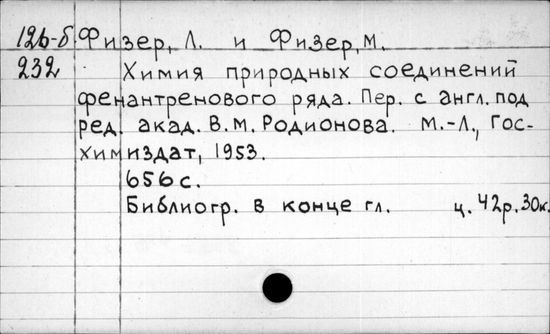 12б-б Физер, Л. и Физер, М.
232 Химия природных соединений
фенантренового ряда. Пер. с англ. под
ред. акад. В.М. Родионова. М.-Л., Гос-
химиздат, 1953.
656 с.
Библиогр. в конце гл. ц. 42р. 30к.